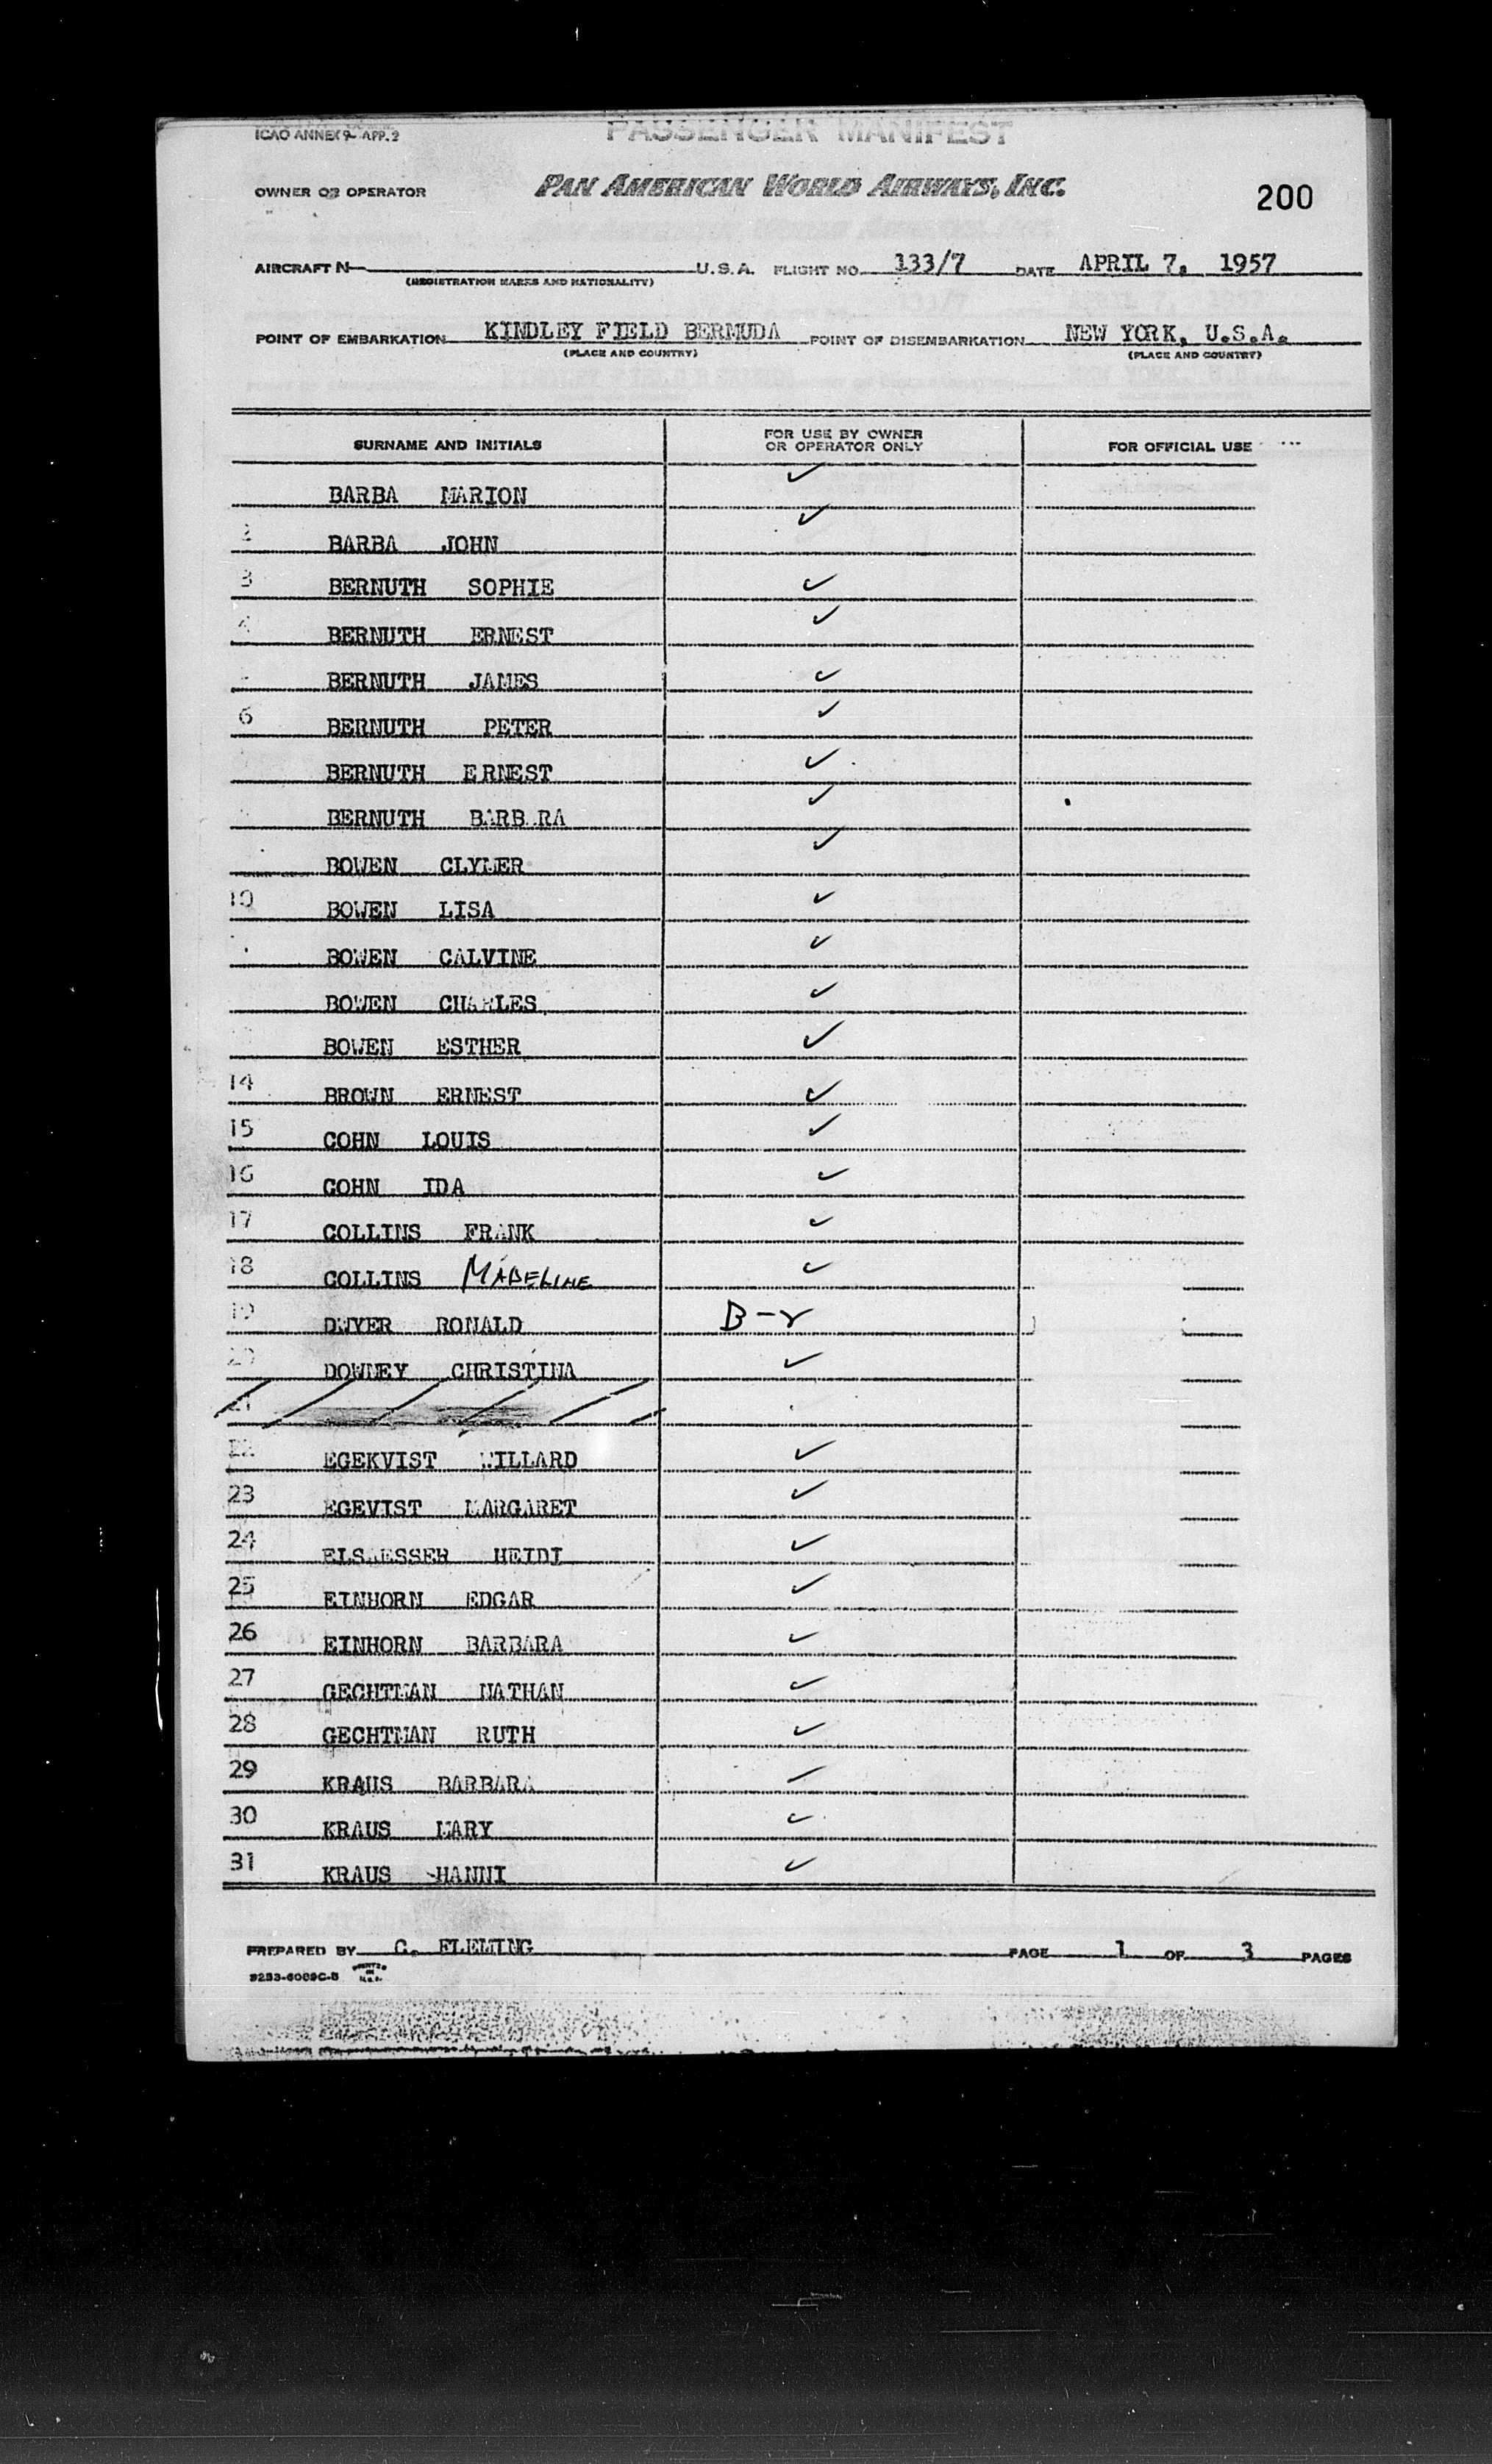 ICAO ANNEX 9 APP. 2
PASSENGER MANIFEST
OWNER OR OPERATOR PAN AMERICAN WORLD AIRWAYS, INC. 200
AIRCRAFT N U.S.A. FLIGHT NO. 133/7 DATE APRIL 7, 1957
(REGISTRATION MARKS AND NATIONALITY)
POINT OF EMBARKATION KINDLEY FIELD BERMUDA POINT OF DISEMBARKATION NEW YORK, U.S.A.
(PLACE AND COUNTRY) (PLACE AND COUNTRY)
SURNAME AND INITIALS FOR USE BY OWNER OR OPERATOR ONLY FOR OFFICIAL USE
BARBA MARION ✓
2 BARBA JOHN ✓
3 BERNUTH SOPHIE ✓
4 BERNUTH ERNEST ✓
BERNUTH JAMES ✓
6 BERNUTH PETER ✓
BERNUTH ERNEST ✓
BERNUTH BARBARA ✓
BOWEN CLYMER ✓
10 BOWEN LISA ✓
BOWEN CALVINE ✓
BOWEN CHARLES ✓
BOWEN ESTHER ✓
14 BROWN ERNEST ✓
15 COHN LOUIS ✓
16 COHN IDA ✓
17 COLLINS FRANK ✓
18 COLLINS MADELINE ✓
19 DWYER RONALD B-r
20 DOWNEY CHRISTINA ✓
21
22 EGEKVIST WILLARD ✓
23 EGEVIST MARGARET ✓
24 ELSAESSER HEIDI ✓
25 EINHORN EDGAR ✓
26 EINHORN BARBARA ✓
27 GECHTMAN NATHAN ✓
28 GECHTMAN RUTH ✓
29 KRAUS BARBARA ✓
30 KRAUS MARY ✓
31 KRAUS HANNI ✓
PREPARED BY C. FLEMING PAGE 1 OF 3 PAGES
PRINTED IN U.S.A.